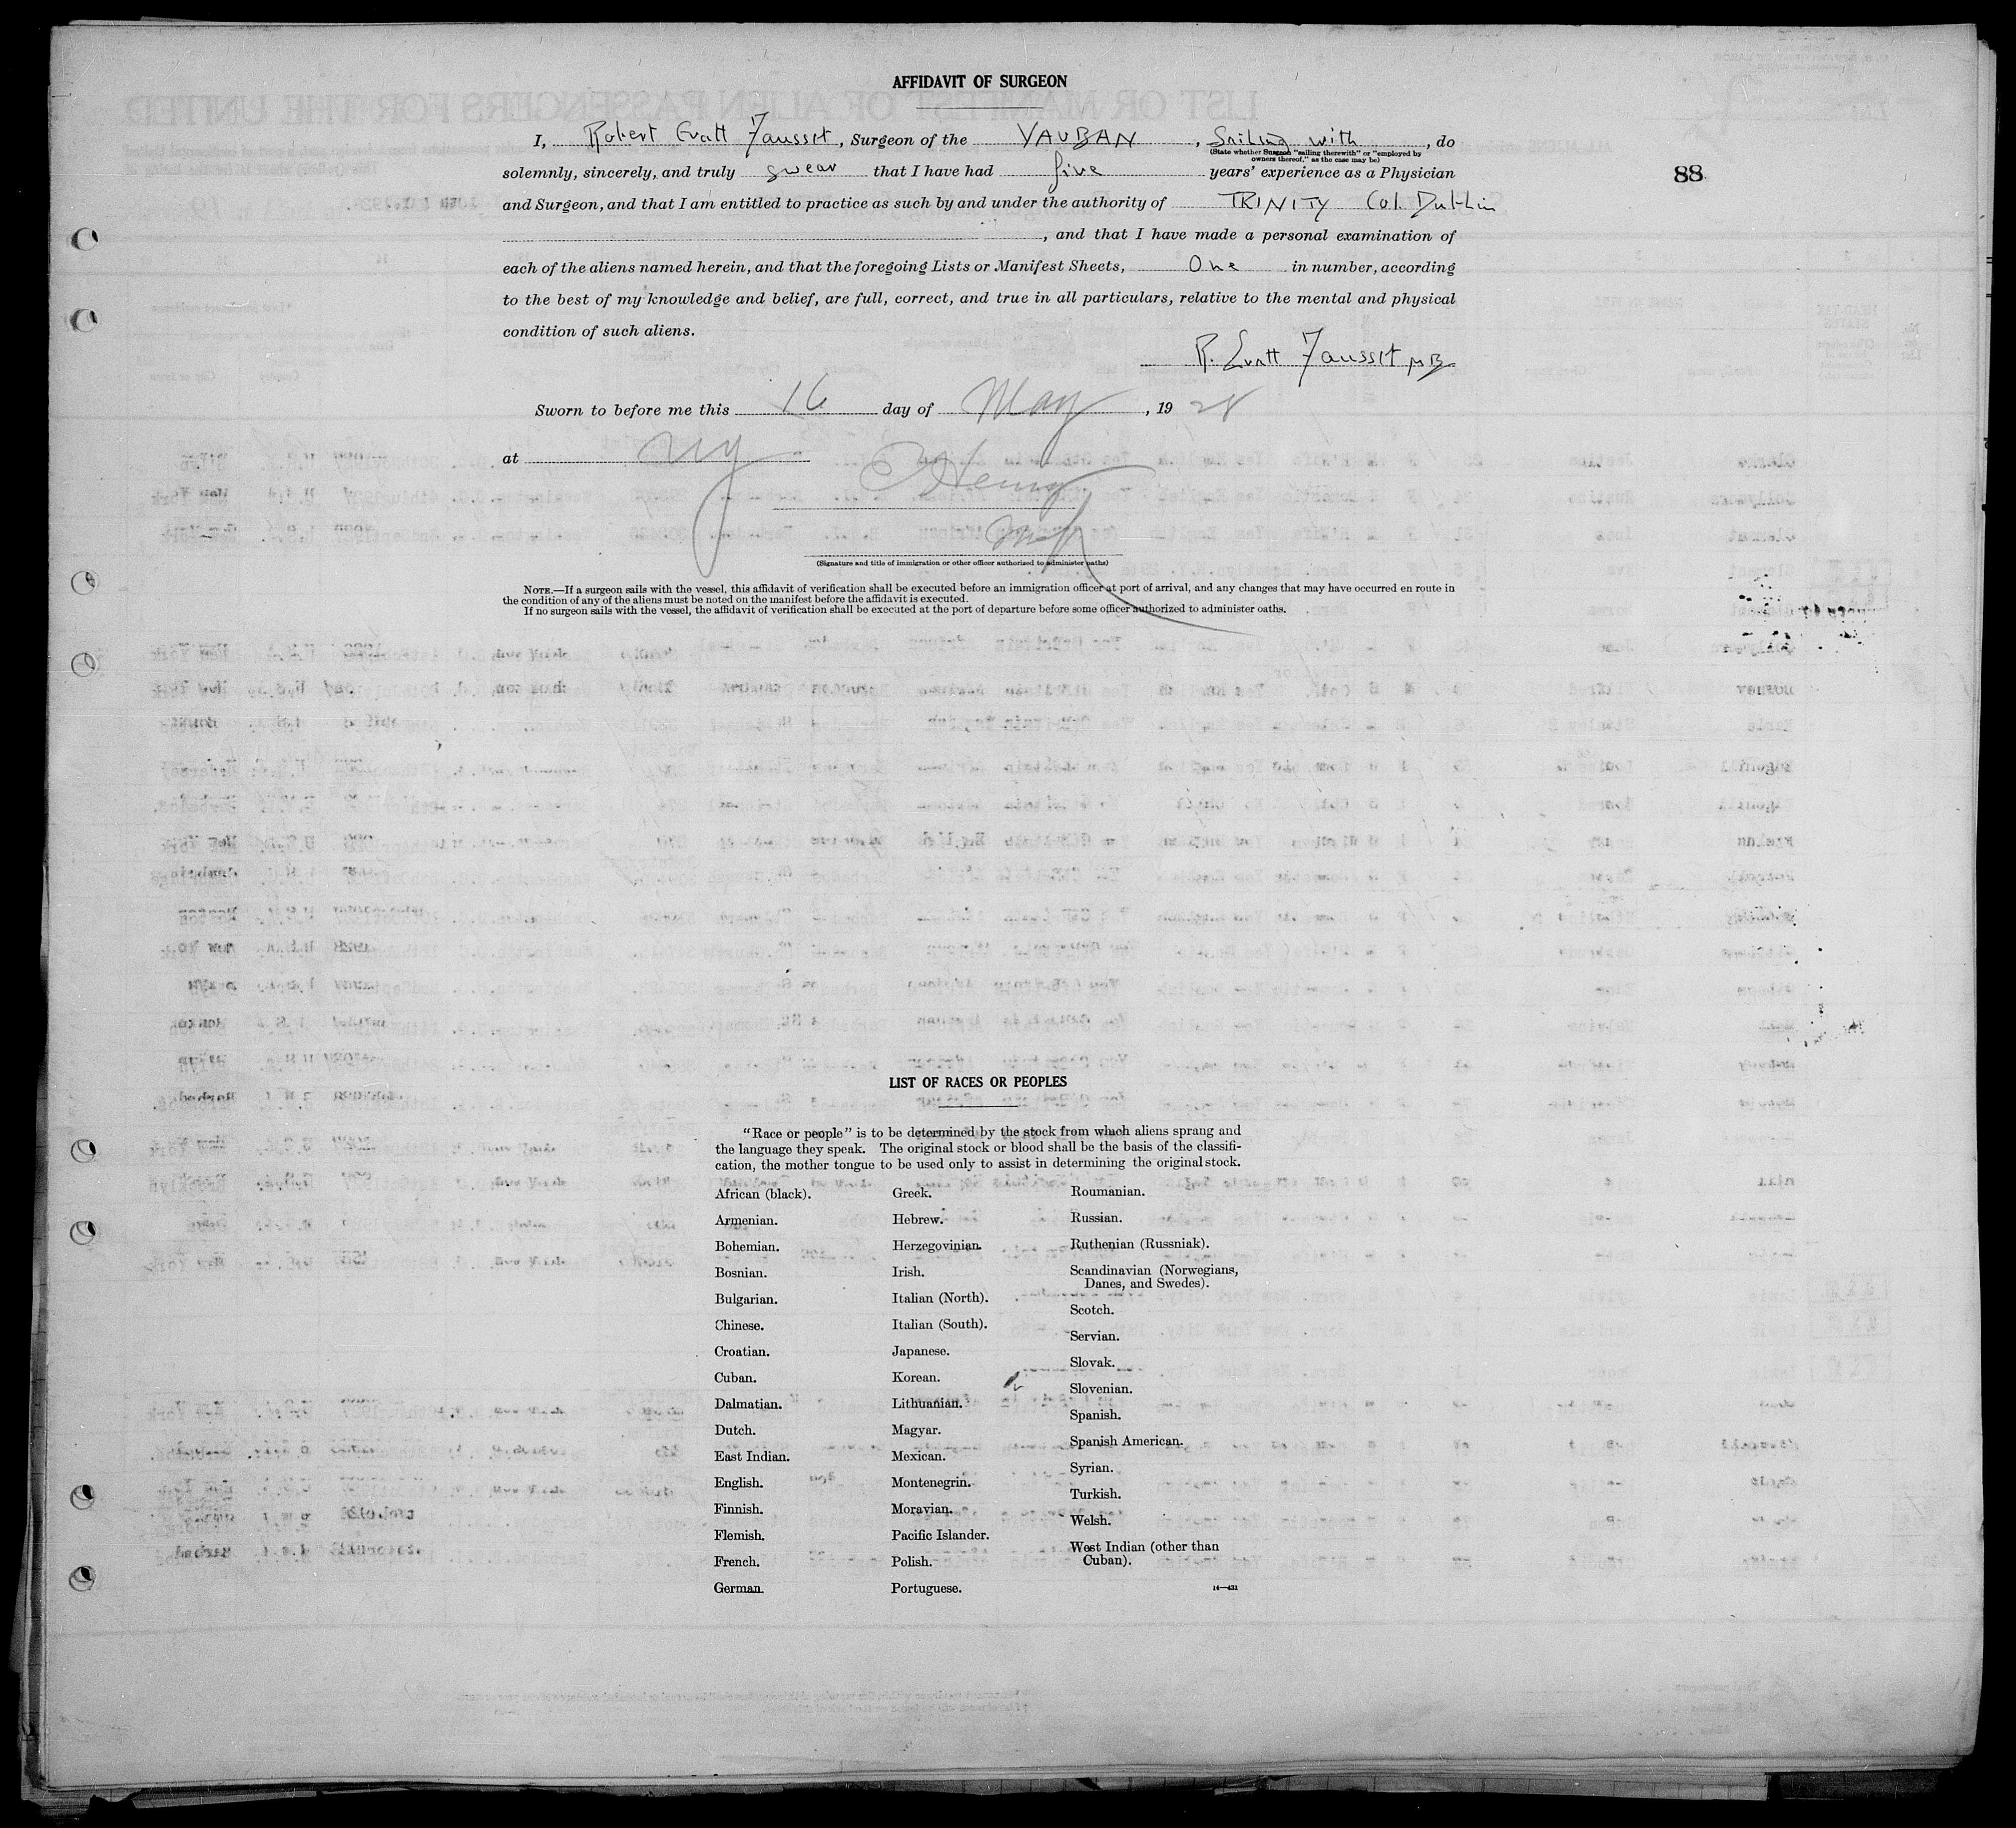 AFFIDAVIT OF SURGEON
I, Robert Evatt Fausset, Surgeon of the VAUBAN, Sailing with, do
(State whether Surgeon "sailing therewith" or "employed by
owners thereof," as the case may be)
88
solemnly, sincerely, and truly swear that I have had five years' experience as a Physician
and Surgeon, and that I am entitled to practice as such by and under the authority of TRINITY Col. Dublin
, and that I have made a personal examination of
each of the aliens named herein, and that the foregoing Lists or Manifest Sheets, One in number, according
to the best of my knowledge and belief, are full, correct, and true in all particulars, relative to the mental and physical
condition of such aliens.
R. Evatt Fausset MB
Sworn to before me this 16 day of May, 19 28
at NY
(Signature and title of immigration or other officer authorized to administer oaths)
NOTE.—If a surgeon sails with the vessel, this affidavit of verification shall be executed before an immigration officer at port of arrival, and any changes that may have occurred en route in
the condition of any of the aliens must be noted on the manifest before the affidavit is executed.
If no surgeon sails with the vessel, the affidavit of verification shall be executed at the port of departure before some officer authorized to administer oaths.
LIST OF RACES OR PEOPLES
"Race or people" is to be determined by the stock from which aliens sprang and
the language they speak. The original stock or blood shall be the basis of the classifi-
cation, the mother tongue to be used only to assist in determining the original stock.
African (black).
Armenian.
Bohemian.
Bosnian.
Bulgarian.
Chinese.
Croatian.
Cuban.
Dalmatian.
Dutch.
East Indian.
English.
Finnish.
Flemish.
French.
German.
Greek.
Hebrew.
Herzegovinian.
Irish.
Italian (North).
Italian (South).
Japanese.
Korean.
Lithuanian.
Magyar.
Mexican.
Montenegrin.
Moravian.
Pacific Islander.
Polish.
Portuguese.
Roumanian.
Russian.
Ruthenian (Russniak).
Scandinavian (Norwegians,
Danes, and Swedes).
Scotch.
Servian.
Slovak.
Slovenian.
Spanish.
Spanish American.
Syrian.
Turkish.
Welsh.
West Indian (other than
Cuban).
14—431